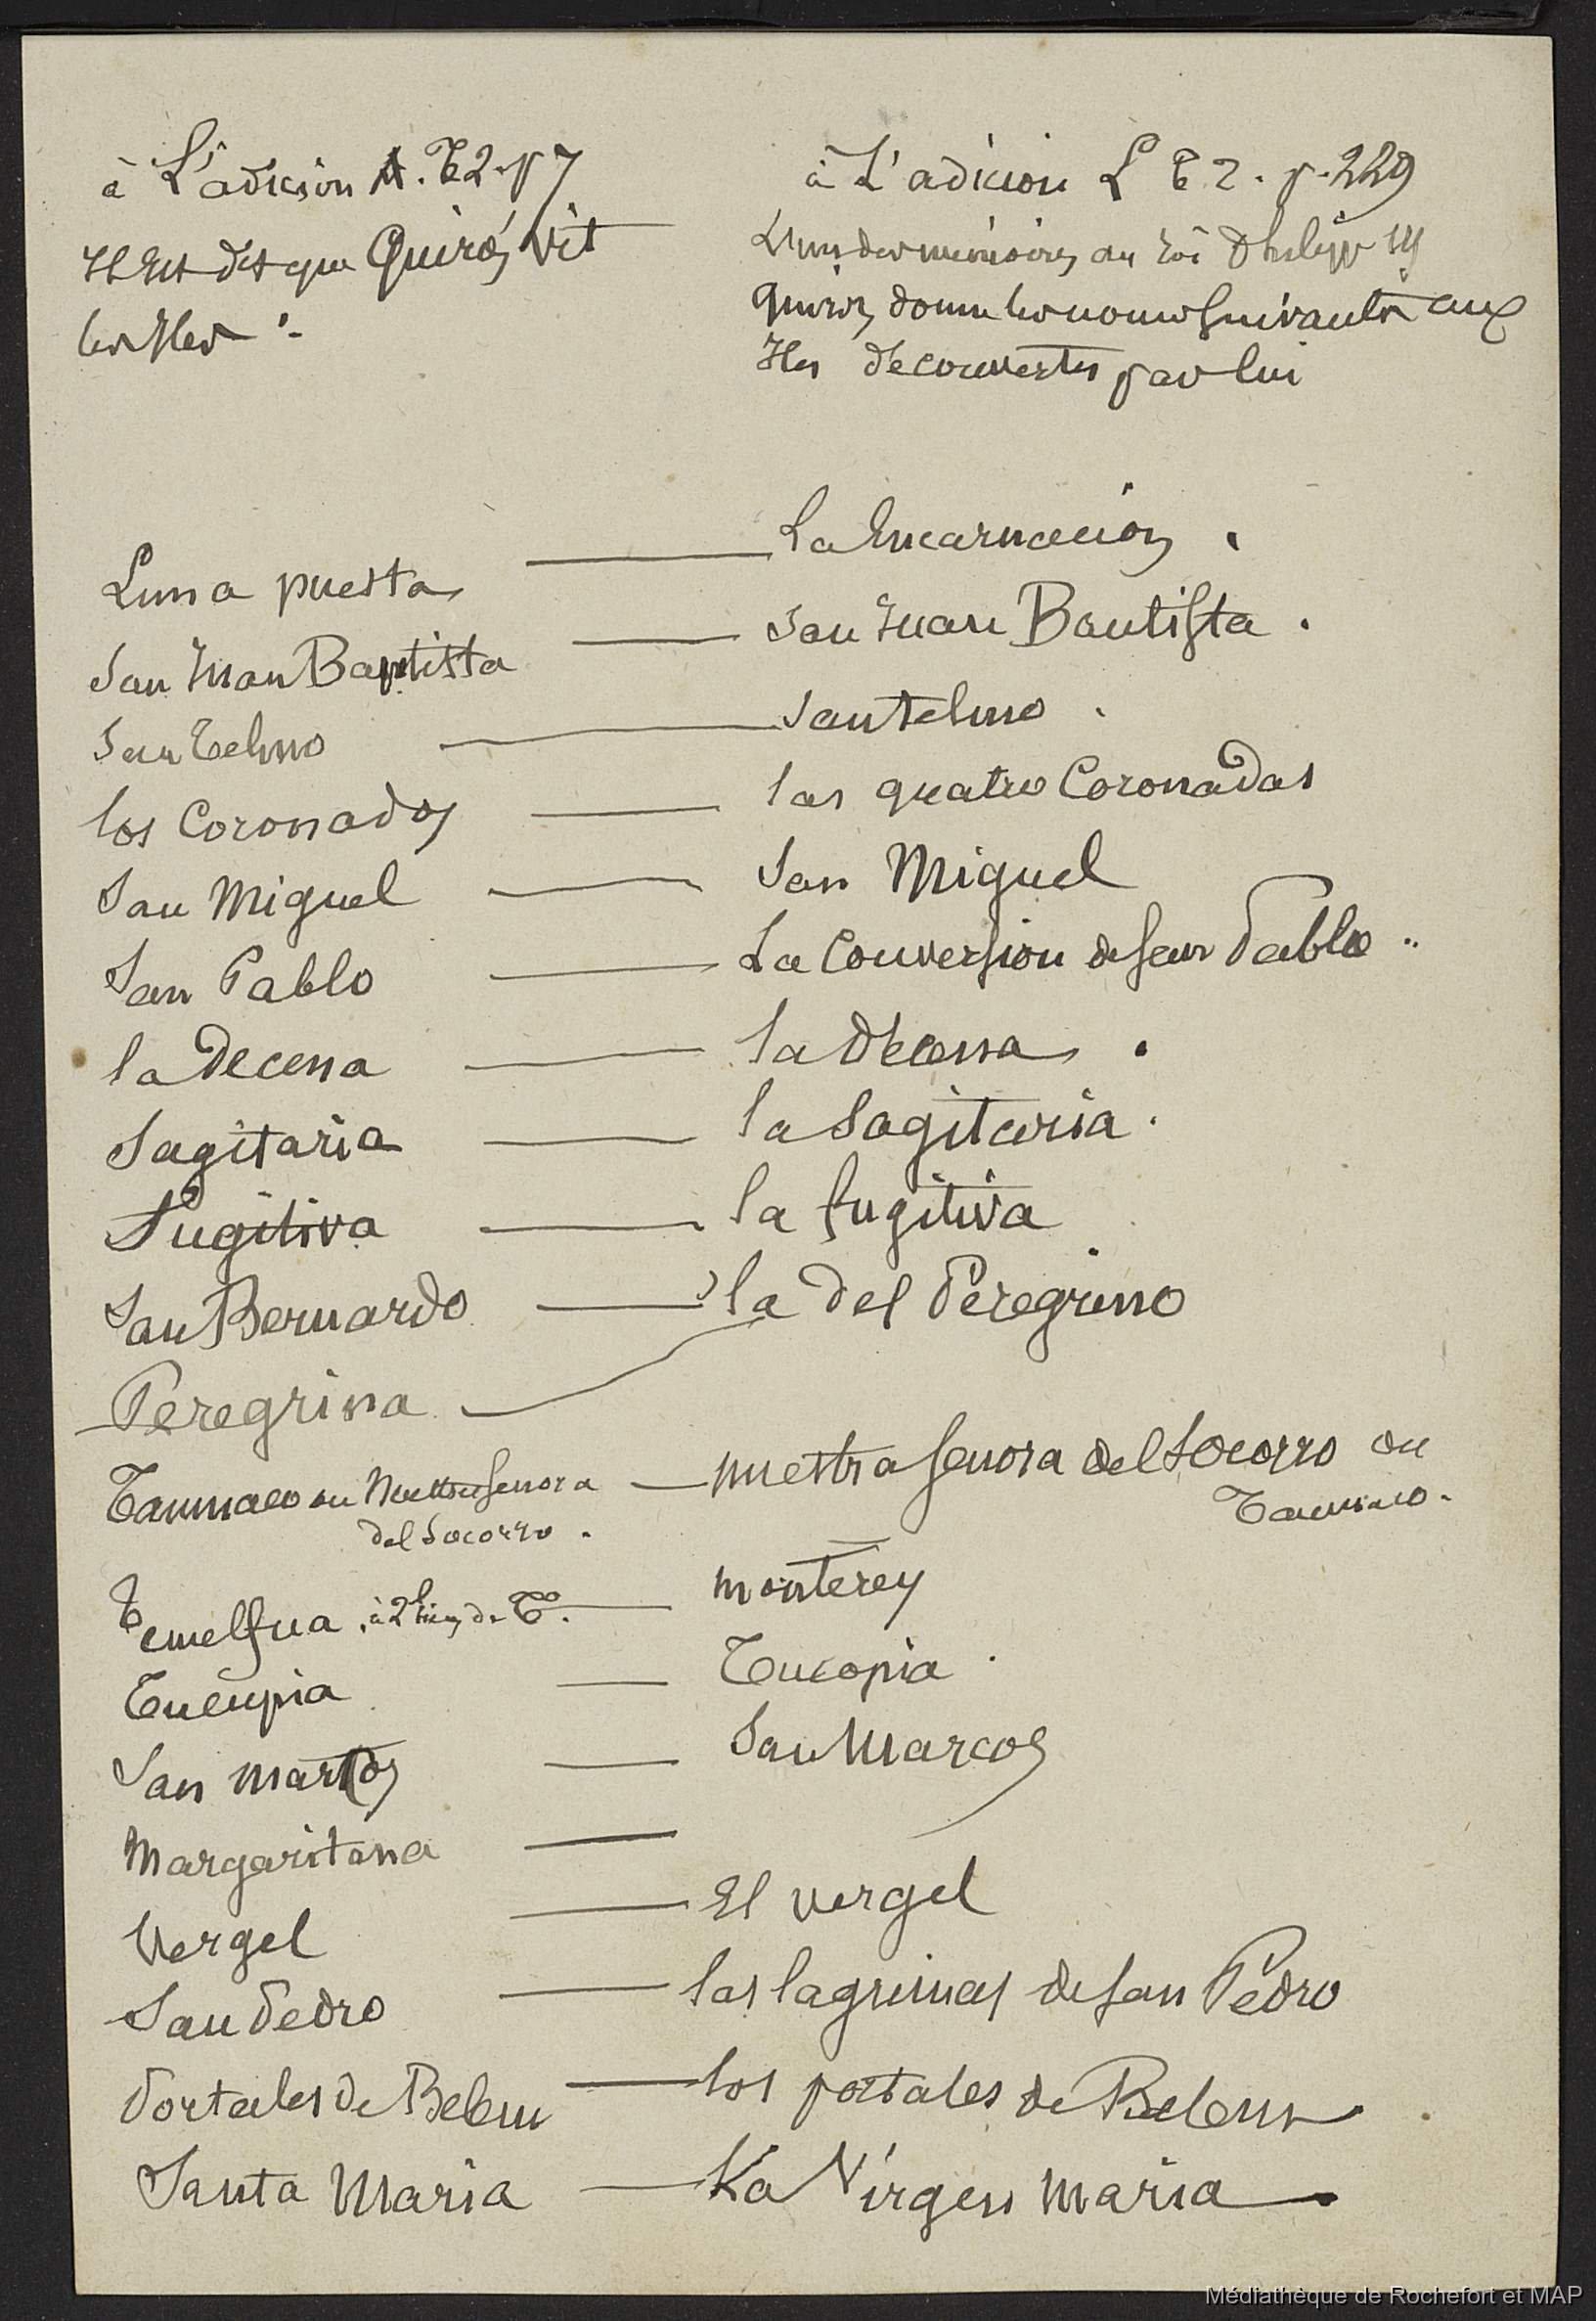 à L'adicion A. T2. p 7
Il est dit que Quirós vit
les Iles :
à L'adicion L T 2. p. 229
L'un des mémoires au roi Philipp III
Quiros donne les noms suivants aux
Iles decouvertes par lui
Luna puesta — La Encarnacion .
San Juan Baptista — San Juan Bautista .
San Telmo — San Telmo .
los Coronados — las quatro Coronadas
San Miguel — San Miguel
San Pablo — La Conversion de San Pablo ..
la Decena — la Decena .
Sagitaria — la Sagitaria .
Fugitiva — la fugitiva
San Bernardo — la del Peregrino
Peregrina
Taumaco ou Nuestra Senora — nuestra senora del Socorro ou
del Socorro . Taumaco .
Temelfua , à 2 de T. — monterey
Tucupia — Tucopia .
San marcos — San Marcos
Margaritana —
Vergel — El vergel
San Pedro — las lagrimas de San Pedro
Portales de Belem — los portales de Belem
Santa Maria — La Virgen maria
Médiathèque de Rochefort et MAP